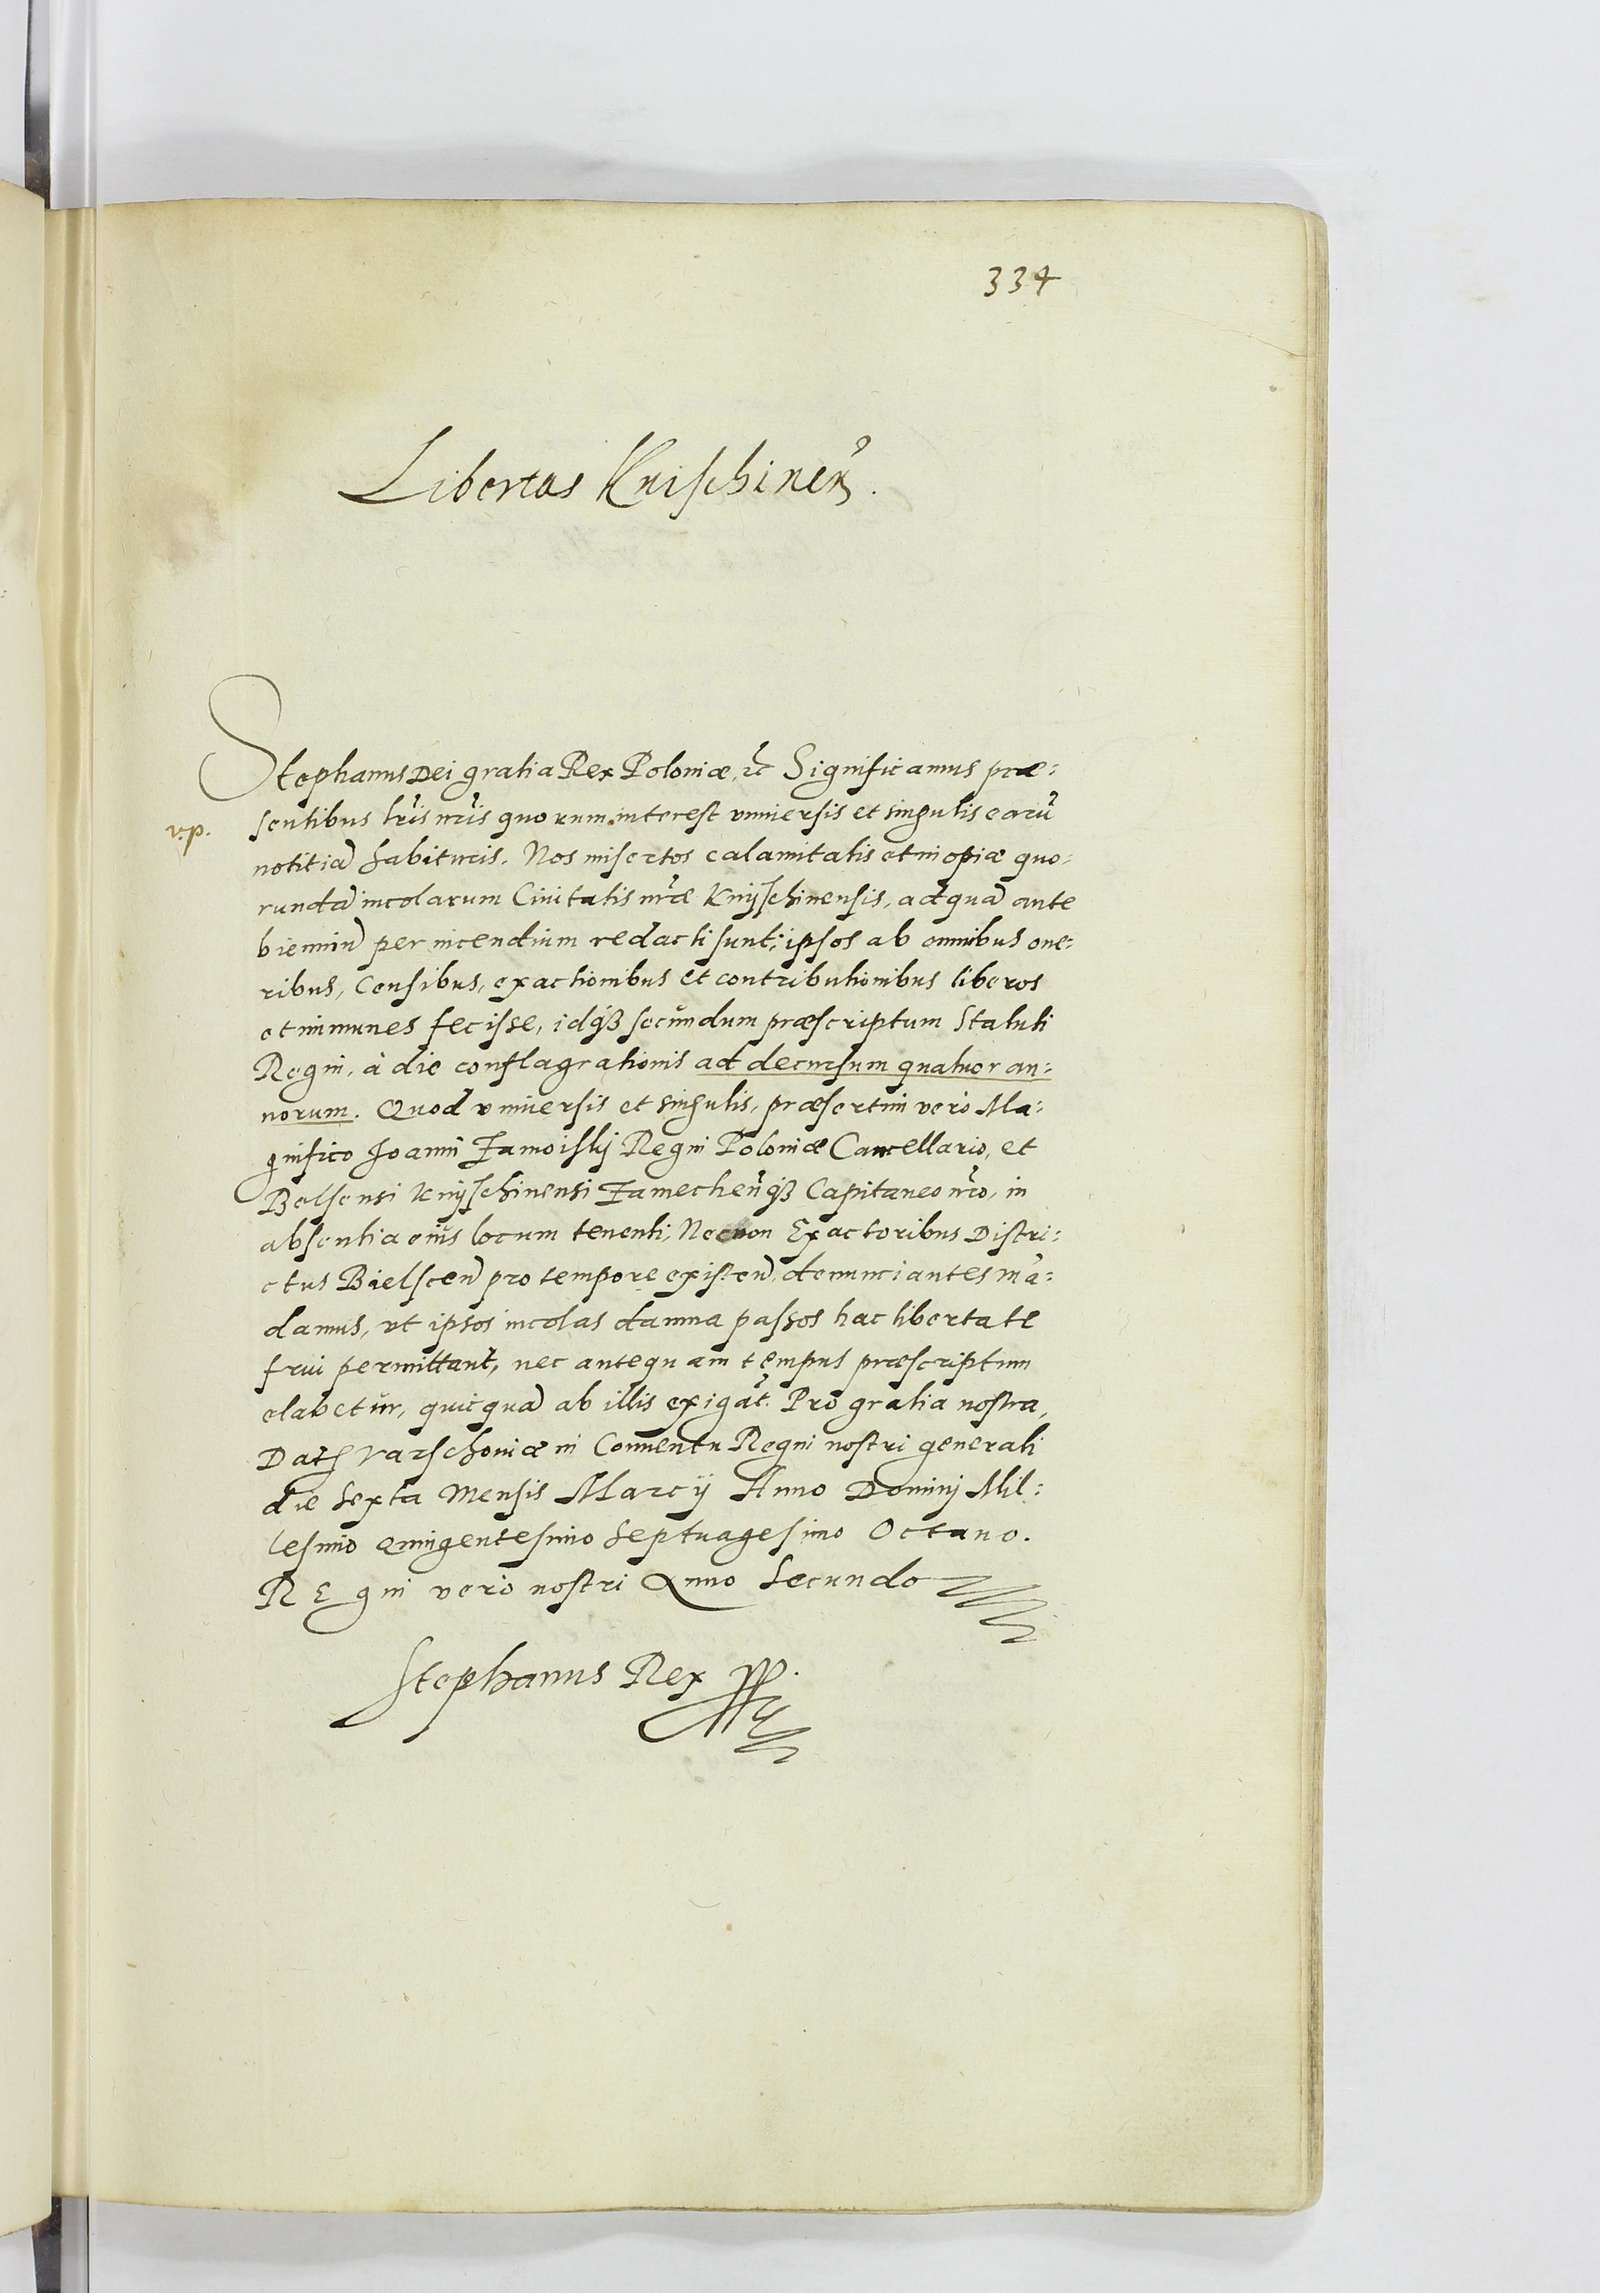 334
Libertas Knischineñ.
Stephanus Dei gratia Rex Poloniæ, ꝛc Significamus præ:
sentibus lr̃is nr̃is quorum interest vniuersis et singulis earũ
v.p.
notitiã habituris. Nos misertos calamitatis et inopiæ quo:
rundã incolarum Ciuitatis nr̃æ Knijschinensis, ad quã ante
bienniũ per incendium redacti sunt; ipsos ab omnibus one:
ribus, Censibus, exactionibus et contributionibus liberos
et immunes fecisse, idqꝫ secundum præscriptum Statuti
Regni, à die conflagrationis ad decursum quatuor an:
norum. Quod vniuersis et singulis, præsertim vero Ma:
gnifico Joanni Zamoiskij Regni Poloniæ Cancellario, et
Belsensi Knijschinensi Zamecheñqꝫ Capitaneo nr̃o, in
absentia eius locum tenenti, Necnon Exactoribus Distri:
ctus Bielsceñ pro tempore existeñ. denunciantes mã:
damus, vt ipsos incolas damna passos hac libertate
frui permittant, nec antequam tempus præscriptum
elabetur, quicquã ab illis exigãt. Pro gratia nostra,
Datꝭ Varschouiæ in Conuentu Regni nostri generali
die Sexta Mensis Marcij Anno Dominj Mil:
lesimo Quingentesimo Septuagesimo Octauo.
REgni vero nostri Anno Secundo
Stephanus Rex